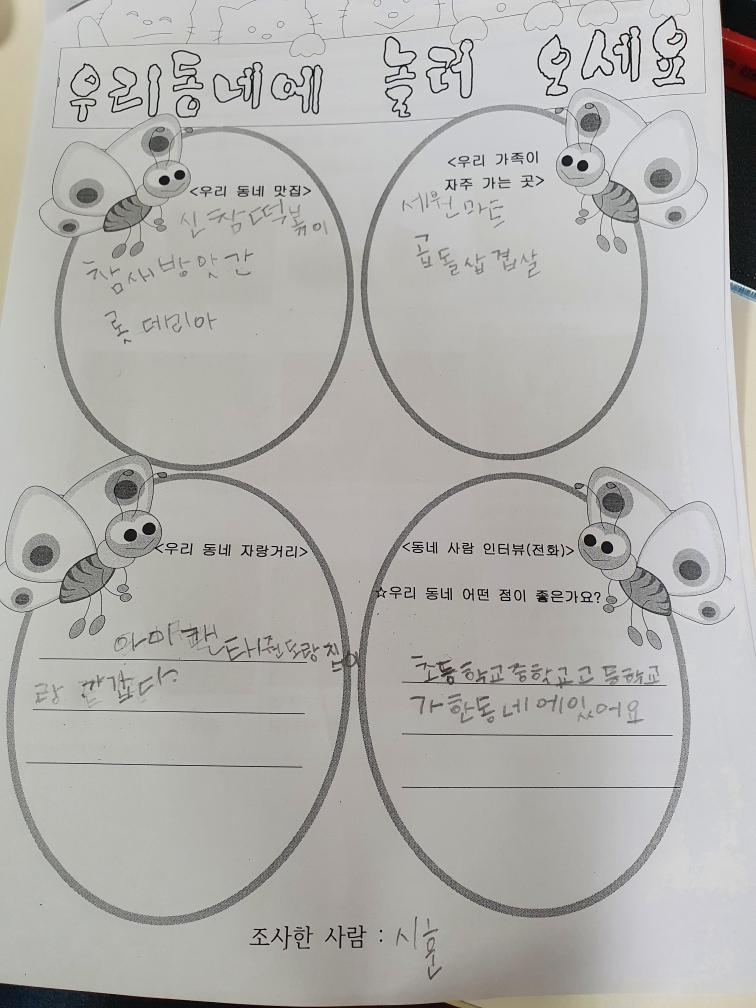 우리동네에 놀러 오세요
<우리 동네 맛집>
신참떡볶이
참새방앗간
롯데리아
<우리 가족이
자주 가는 곳>
세원마트
곰돌삽겹살
<우리 동네 자랑거리>
가깝습니다
<동네 사람 인터뷰(전화)>
☆우리 동네 어떤 점이 좋은가요?
초등학교중학교고등학교
가한동네에있어요
조사한 사람 : 시훈